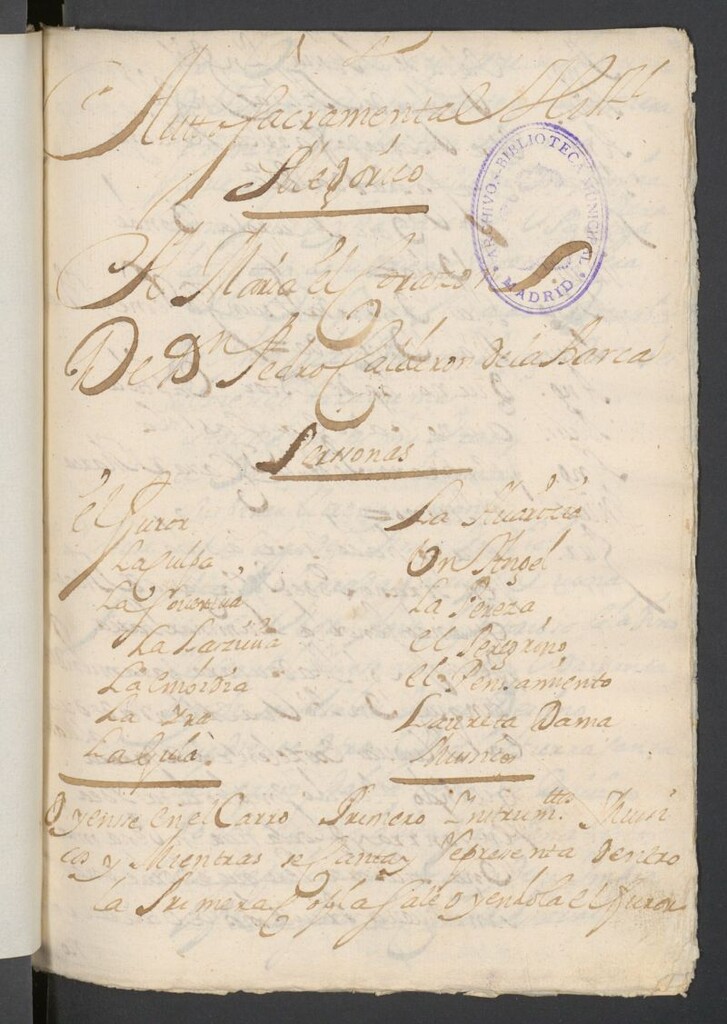 Auto Sacramental
Alegórico
A Maria el Corazon
De Dn Pedro Calderon de la Barca
ARCHIVO - BIBLIOTECA MUNICIPAL
MADRID
Personas
el Furor
La Culpa
La Soverviа
La Lascivia
La Embidia
La Ira
La Gula
La Avaricia
Un Angel
La Pereza
el Peregrino
el Pensamiento
Laureta Dama
Musicos
Oyense en el Carro Primero Instrumtos Musi
cos y Mientras se Canta y Representa dentro
la Primera Copla Sale oyendola el Furor